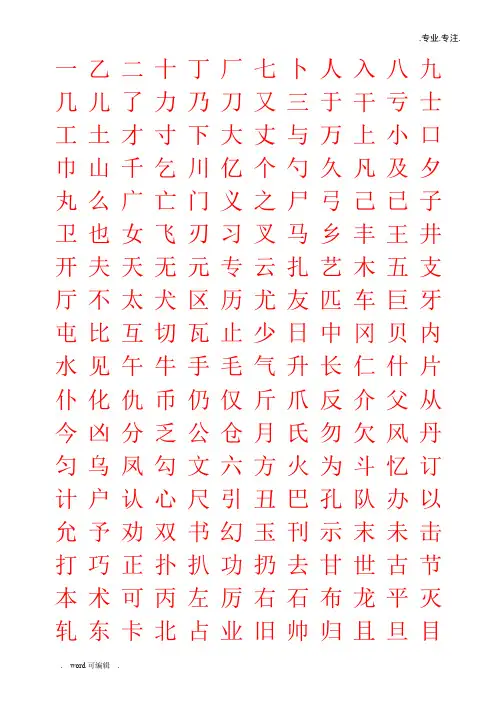 .专业.专注.
一 乙 二 十 丁 厂 七 卜 人 入 八 九
几 儿 了 力 乃 刀 又 三 于 干 亏 士
工 土 才 寸 下 大 丈 与 万 上 小 口
巾 山 千 乞 川 亿 个 勺 久 凡 及 夕
丸 么 广 亡 门 义 之 尸 弓 己 已 子
卫 也 女 飞 刃 习 叉 马 乡 丰 王 井
开 夫 天 无 元 专 云 扎 艺 木 五 支
厅 不 太 犬 区 历 尤 友 匹 车 巨 牙
屯 比 互 切 瓦 止 少 日 中 冈 贝 内
水 见 午 牛 手 毛 气 升 长 仁 什 片
仆 化 仇 币 仍 仅 斤 爪 反 介 父 从
今 凶 分 乏 公 仓 月 氏 勿 欠 风 丹
匀 乌 凤 勾 文 六 方 火 为 斗 忆 订
计 户 认 心 尺 引 丑 巴 孔 队 办 以
允 予 劝 双 书 幻 玉 刊 示 末 未 击
打 巧 正 扑 扒 功 扔 去 甘 世 古 节
本 术 可 丙 左 厉 右 石 布 龙 平 灭
轧 东 卡 北 占 业 旧 帅 归 且 旦 目
. word可编辑 .